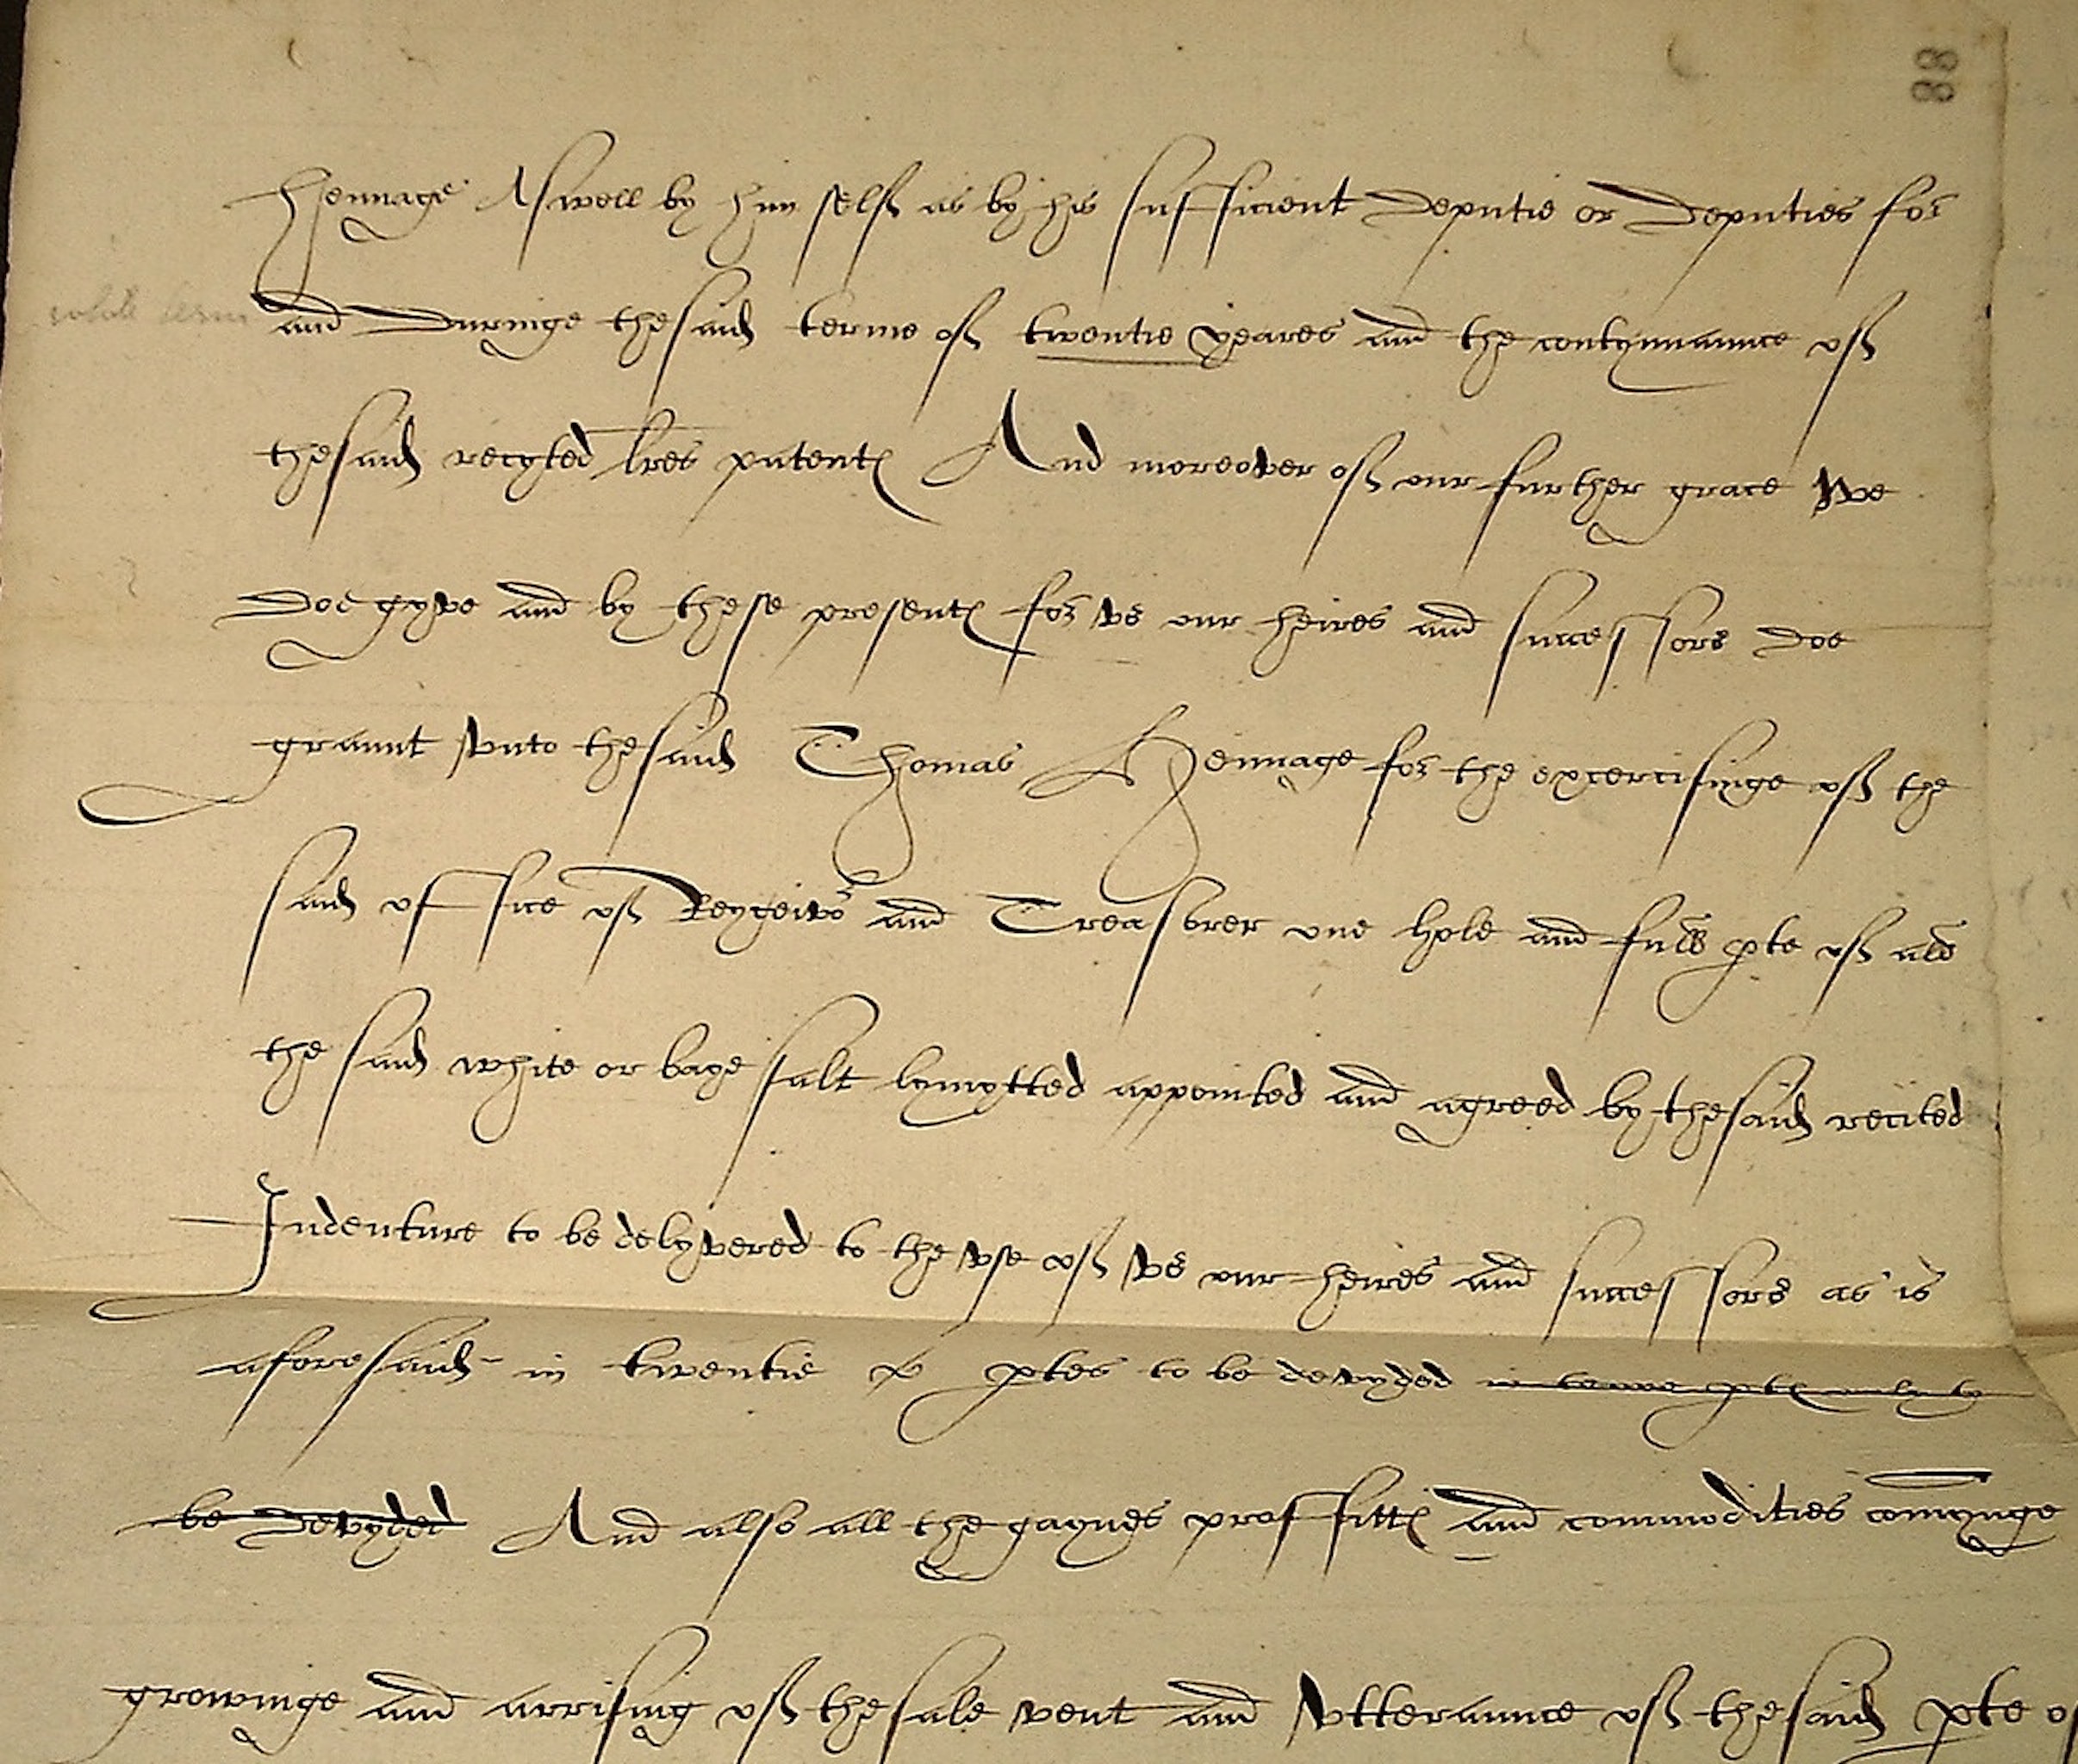 88
Hennage Aswell by him self as by his sufficient Deputie or Deputies for
and Duringe the said terme of twentie yeares and the contynnaunce of
the said recyted lres patents And moreover of our further grace we
Doe gyve and by these presents for vs our heires and successors doe
graunt vnto the said Thomas Hennage for the excercisinge of the
said office of Reyceivor and Treasorer one hole and full pte of all
the said white or baye salt lymytted appointed and agreed by the said recited
Indenture to be delyvered to the vse of vs our heires and successors as is
aforesaid in twentie ptes to be devyded in ptes only to
be Devyded And also all the gaynes proffitts and commodities comynge
growinge and arrising of the sale vent and vtteraunce of the said pte of